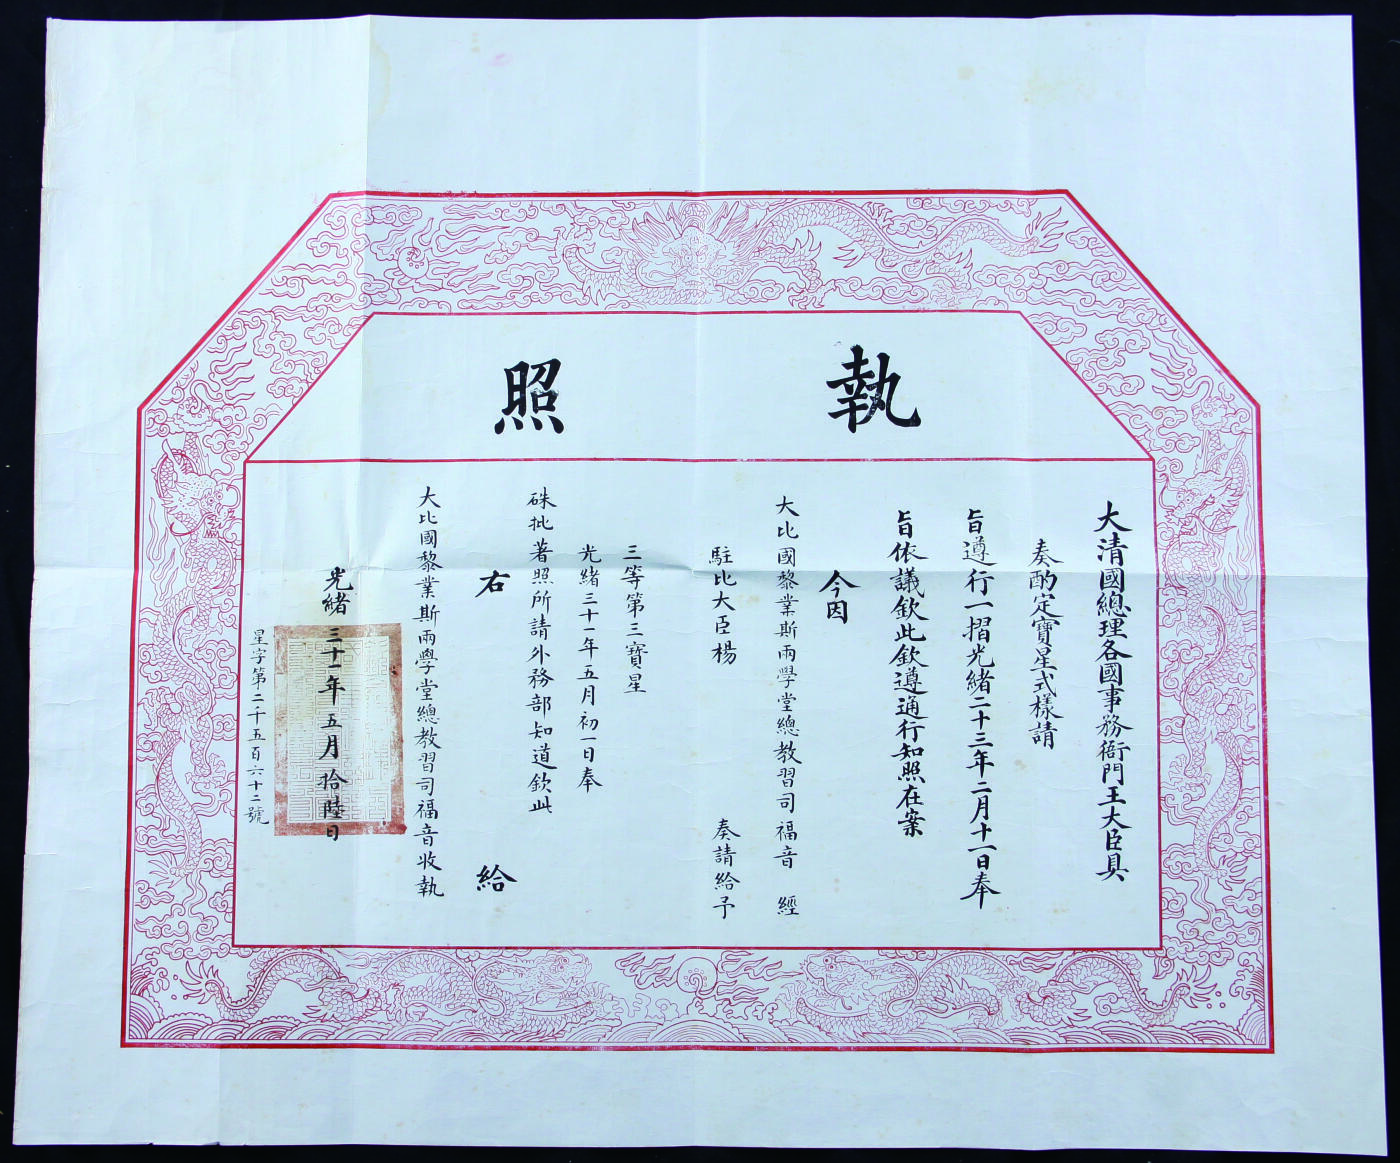 執照
大清國總理各國事務衙門王大臣具
奏酌定寶星式樣請
旨遵行一摺光緒二十三年二月十一日奉
旨依議欽此欽遵通行知照在案
今因
大比國黎業斯兩學堂總教習司福音 經
駐比大臣楊 奏請給予
三等第三寶星
光緒三十一年五月初一日奉
硃批著照所請外務部知道欽此
右 給
大比國黎業斯兩學堂總教習司福音收執
光緒三十一年五月拾陸日
星字第二十五百六十二號